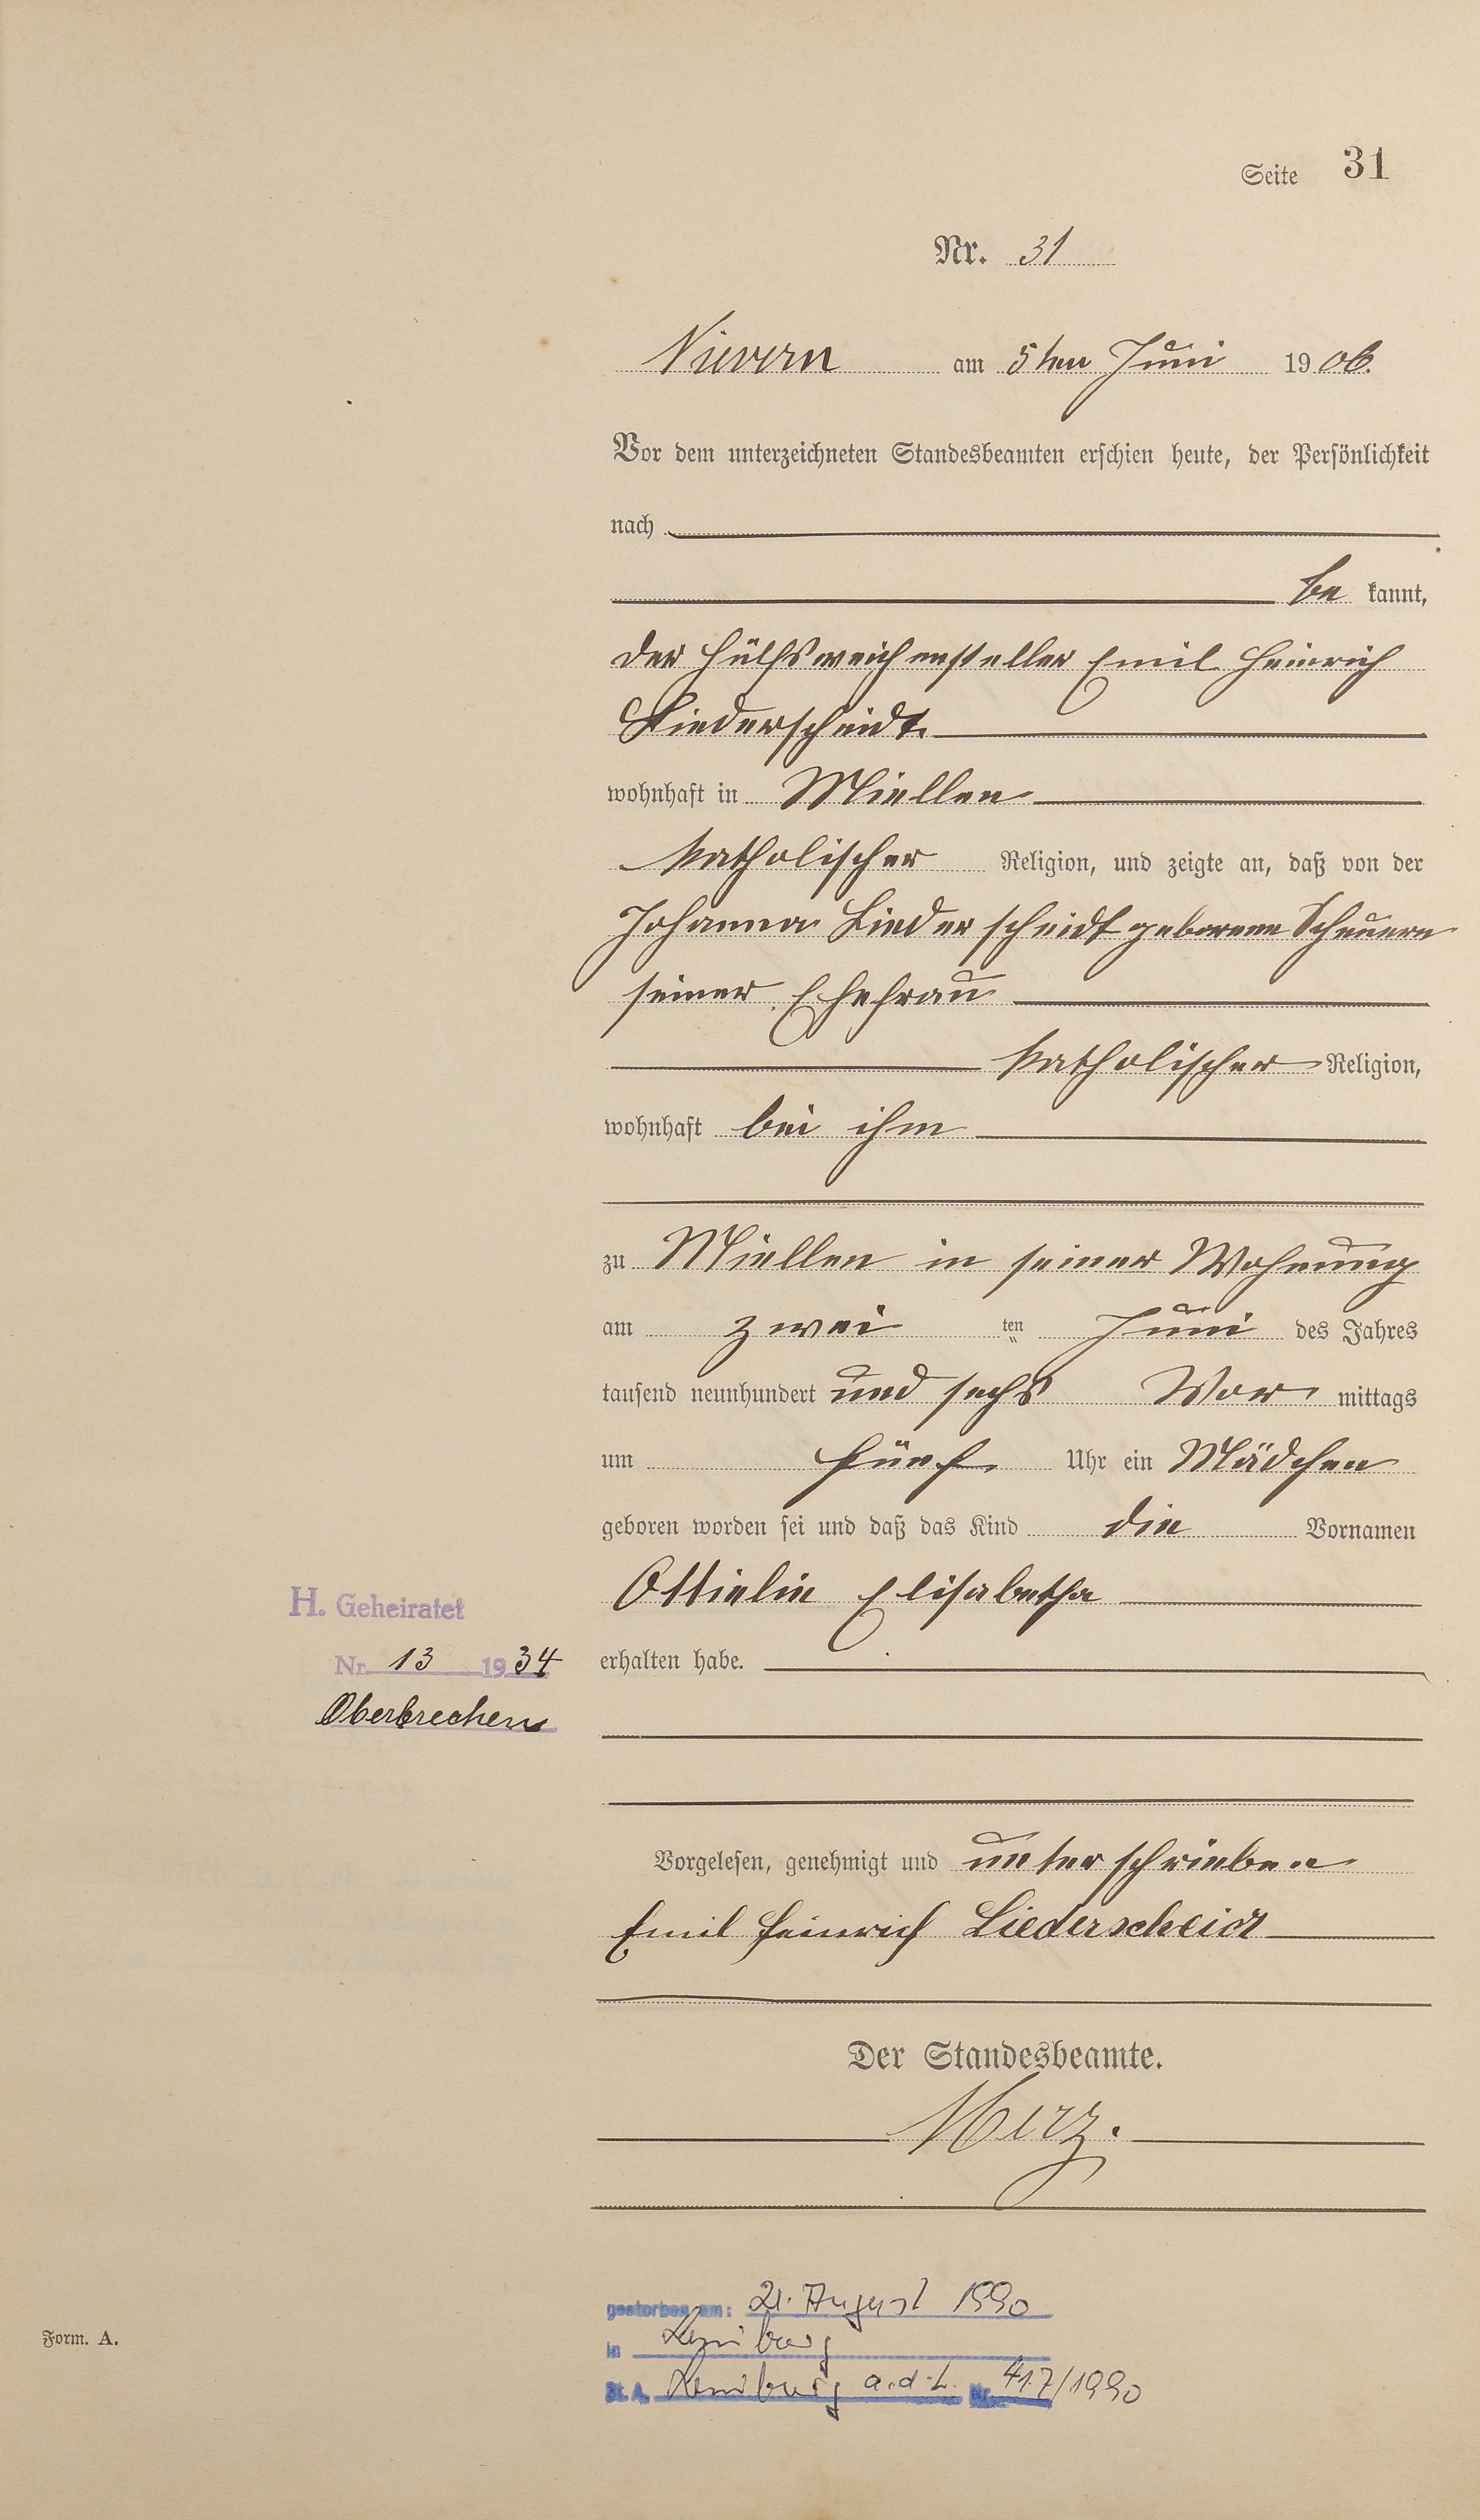 Seite 31
Nr. 31
Nievern am 5ten Juni 1906.
Vor dem unterzeichneten Standesbeamten erschien heute, der Persönlichkeit
nach
be kannt,
der Hülfsweichensteller Emil Heinrich
Liederscheidt
wohnhaft in Miellen
katholischer Religion, und zeigte an, daß von der
Johanna Liederscheidt geborene Scheuern
seiner Ehefrau
katholischer Religion,
wohnhaft bei ihm
zu Miellen in seiner Wohnung
am zwei ten Juni des Jahres
tausend neunhundert und sechs Vor mittags
um fünf Uhr ein Mädchen
geboren worden sei und daß das Kind die Vornamen
Ottielie Elisabetha
H. Geheiratet
Nr. 13 1934
Oberbrechen
erhalten habe.
Vorgelesen, genehmigt und unterschrieben
Emil Heinrich Liederscheidt
Der Standesbeamte.
Merz.
gestorben am: 21. August 1990
in Limburg
St. A. Limburg a.d.L. Nr. 417/1990
Form. A.